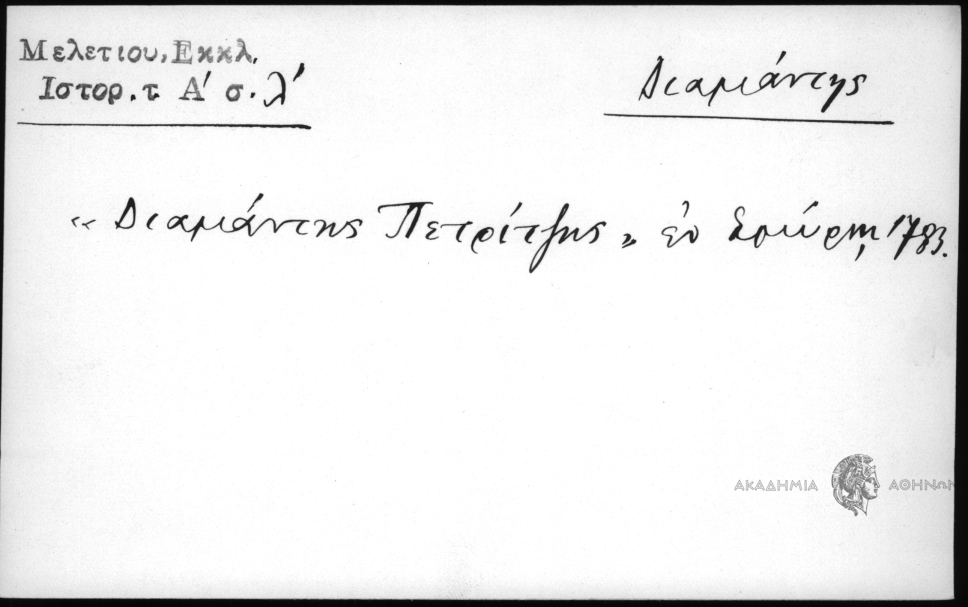 Μελετίου, Εκκλ.
Ιστορ. τ. Α' σ. λ'
Διαμάντης
"Διαμάντης Πετρίτζης" ἐν Σμύρνῃ, 1783.
ΑΚΑΔΗΜΙΑ ΑΘΗΝΩΝ